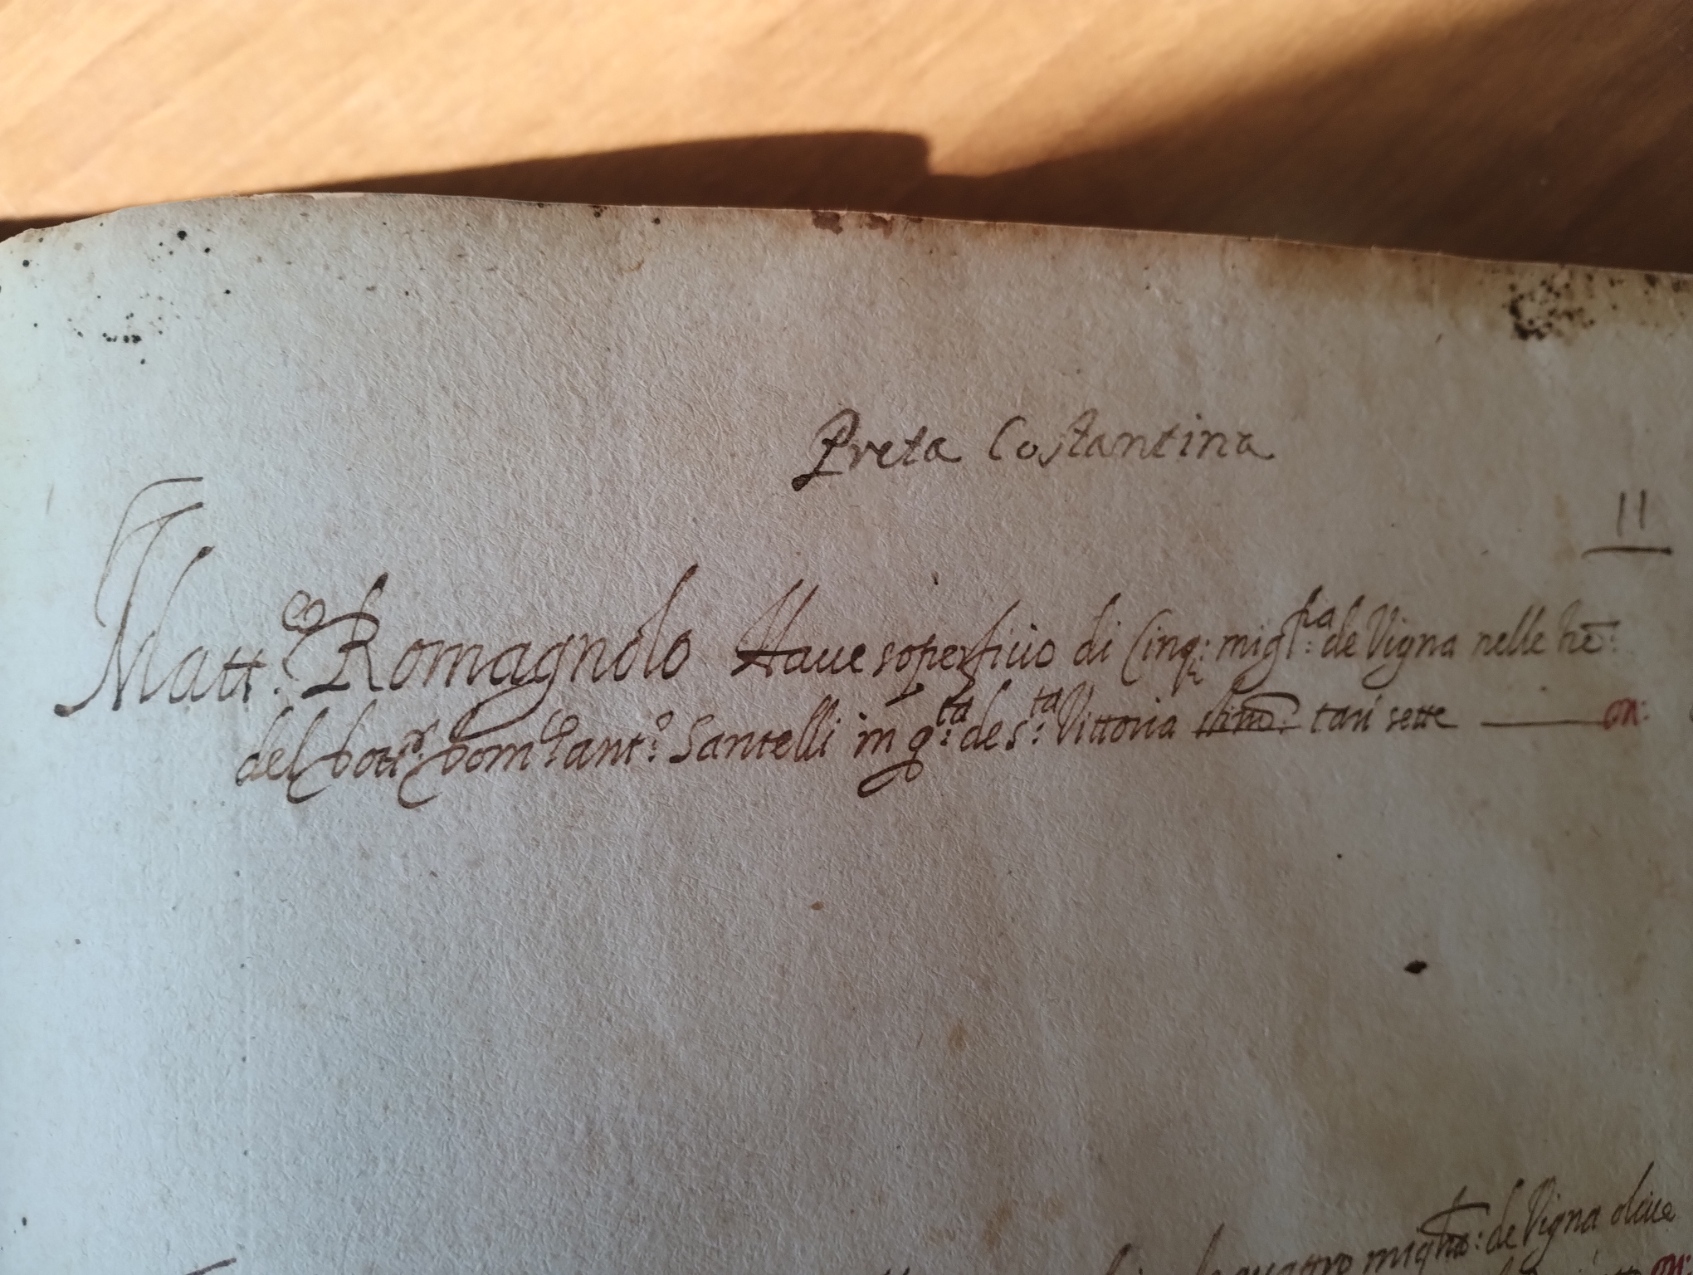 Preta Costantina
11
Matt.º Romagnolo Haue soperficio di Cinq: migl:ra de Vigna nelle he:
del Dott:r Dom:co ant:º Santelli in q:ta de s:ta Vittoria stim: tarì sette on:
quattro migl:ra: de Vigna oliue
on: